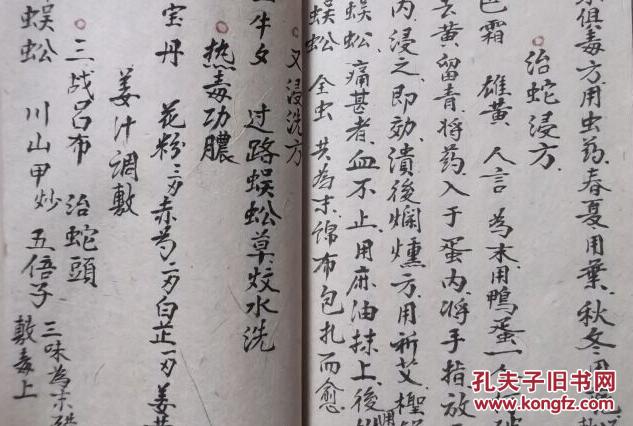 俱毒方用虫药春夏用葉秋冬
治蛇浸方
霜 雄黄 人言 為末用鴨蛋一
去黄留青将药入于蛋内将手指放
内浸之即効潰後爛爋方用祈艾
蜈蚣痛甚者血不止用麻油抹上後
蜈蚣 全虫 共為末 布包扎而愈
又浸洗方
牛夕 过路蜈蚣草 水洗
热毒功膿
宝丹 花粉 赤芍 白芷 姜
姜汁調敷
三战吕布 治蛇頭
蜈蚣 川山甲炒 五倍子 三味為末醋
敷毒上
孔夫子旧书网
www.kongfz.com